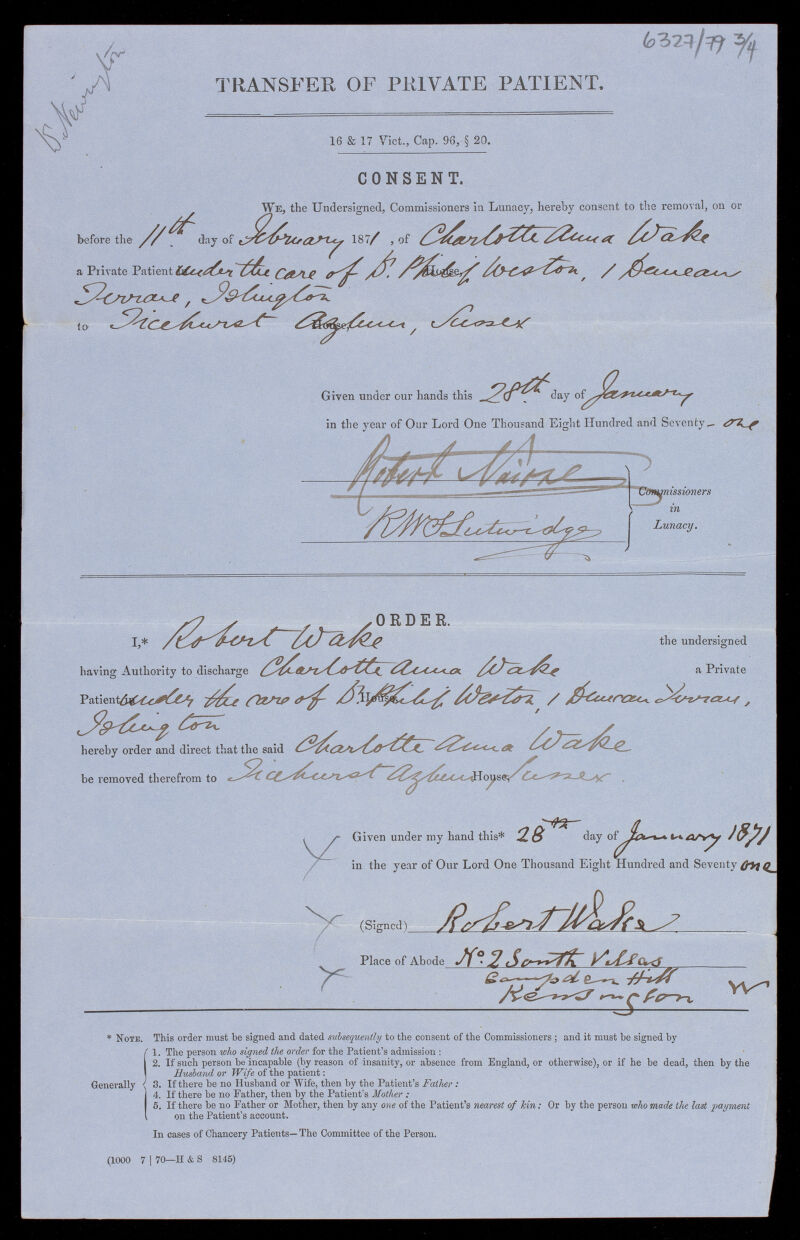 6327/79 3/4
Dr. Newington
TRANSFER OF PRIVATE PATIENT.
16 & 17 Vict., Cap. 96, § 20.
CONSENT.
WE, the Undersigned, Commissioners in Lunacy, hereby consent to the removal, on or
before the 11th day of February 1871, of Charlotte Anna Wake
a Private Patient under the care of Dr. Philip Weston, 1 Duncan
Terrace, Islington
to Ticehurst Asylum, Sussex
Given under our hands this 28th day of January
in the year of Our Lord One Thousand Eight Hundred and Seventy-one
Robert Nairne
RWSLutwidge
Commissioners
in
Lunacy.
ORDER.
I,* Robert Wake the undersigned
having Authority to discharge Charlotte Anna Wake a Private
Patient under the care of Dr. Philip Weston, 1 Duncan Terrace,
Islington
hereby order and direct that the said Charlotte Anna Wake
be removed therefrom to Ticehurst Asylum House, Sussex.
Given under my hand this* 28th day of January 1871
in the year of Our Lord One Thousand Eight Hundred and Seventy one
(Signed) Robert Wake.
Place of Abode No. 2 South Villas
Campden Hill
Kensington W
* NOTE. This order must be signed and dated subsequently to the consent of the Commissioners; and it must be signed by
1. The person who signed the order for the Patient's admission:
2. If such person be incapable (by reason of insanity, or absence from England, or otherwise), or if he be dead, then by the
Husband or Wife of the patient:
Generally 3. If there be no Husband or Wife, then by the Patient's Father:
4. If there be no Father, then by the Patient's Mother:
5. If there be no Father or Mother, then by any one of the Patient's nearest of kin: Or by the person who made the last payment
on the Patient's account.
In cases of Chancery Patients—The Committee of the Person.
(1000 7 | 70—H & S 8145)